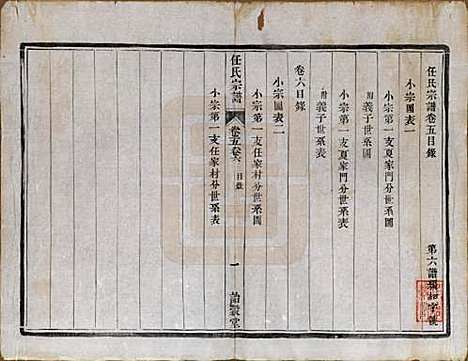 任氏宗譜卷五目錄
小宗圖表一
小宗第一支夏家門分世系圖
附義子世系圖
小宗第一支夏家門分世系表
附義子世系表
卷六目錄
小宗圖表二
小宗第一支任家村分世系圖
任氏宗譜
卷五卷六
目錄
一
小宗第一支任家村分世系表
第六譜